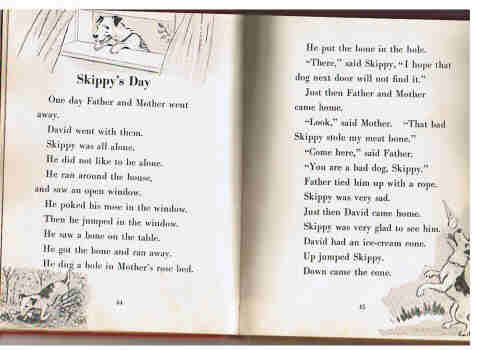 Skippy's Day
One day Father and Mother went
away.
David went with them.
Skippy was all alone.
He did not like to be alone.
He ran around the house,
and saw an open window.
He poked his nose in the window.
Then he jumped in the window.
He saw a bone on the table.
He got the bone and ran away.
He dug a hole in Mother's rose bed.
44
He put the bone in the hole.
"There," said Skippy, "I hope that
dog next door will not find it."
Just then Father and Mother
came home.
"Look," said Mother. "That bad
Skippy stole my meat bone."
"Come here," said Father.
"You are a bad dog, Skippy."
Father tied him up with a rope.
Skippy was very sad.
Just then David came home.
Skippy was very glad to see him.
David had an ice-cream cone.
Up jumped Skippy.
Down came the cone.
45